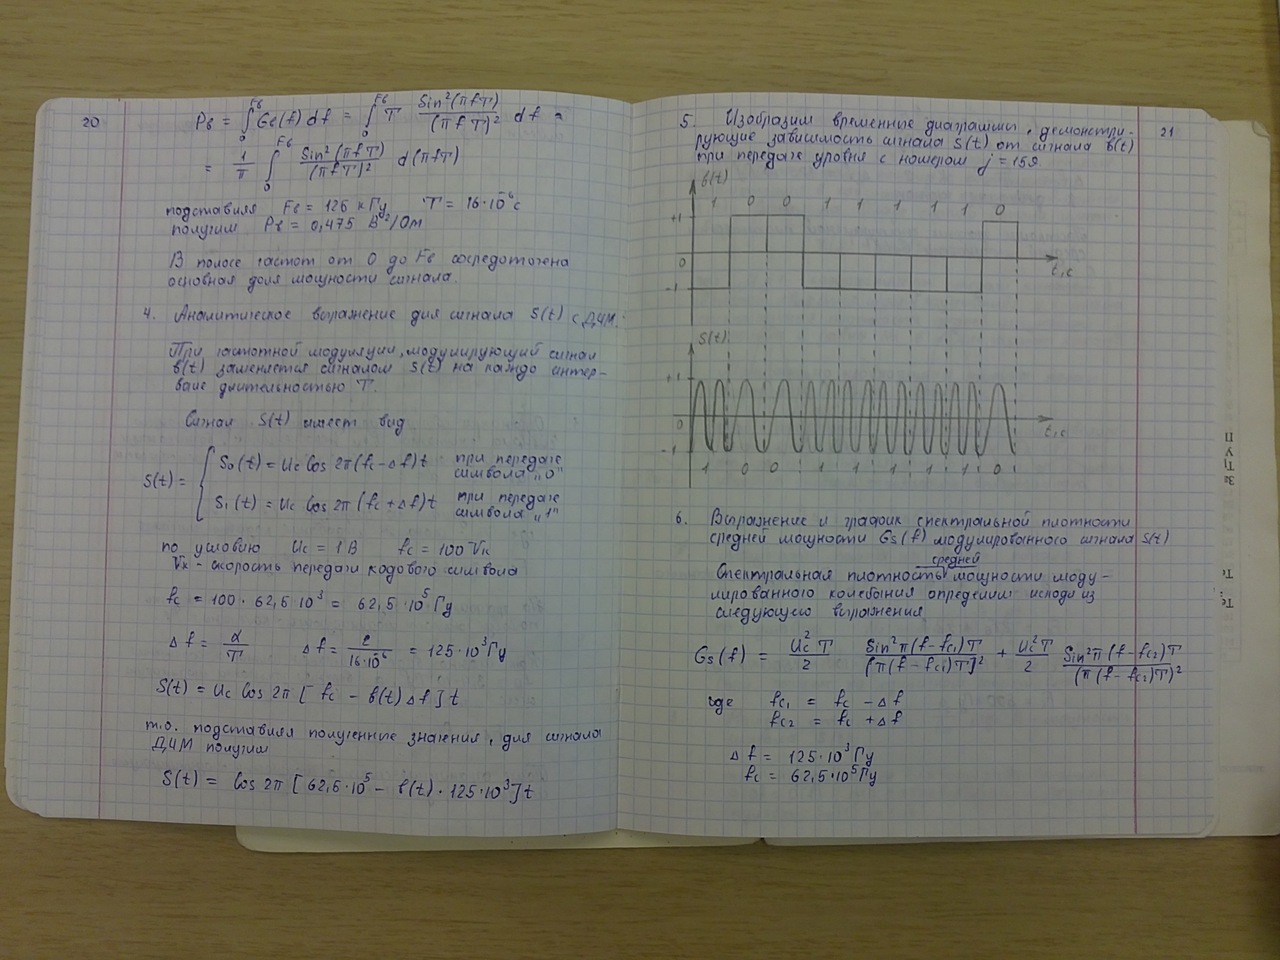 20
Pв = ∫₀^Fв Gв(f) df = ∫₀^Fв T Sin²(πfT)/(πfT)² df =
= 1/π ∫₀^Fв Sin²(πfT)/(πfT)² d(πfT)
подставляя Fв = 126 кГц T = 16·10⁻⁶ с
получим Pв = 0,475 В²/Ом
В полосе частот от 0 до Fв сосредоточена
основная доля мощности сигнала.
4. Аналитическое выражение для сигнала S(t) с ДЧМ.
При частотной модуляции, модулирующий сигнал
в(t) заменяется сигналом S(t) на каждо интер-
вале длительностью T.
Сигнал S(t) имеет вид
S(t) = { S₀(t) = Uc Cos 2π(fc - Δf)t при передаче
символа „0"
S₁(t) = Uc Cos 2π(fc + Δf)t при передаче
символа „1"
по условию Uc = 1 В fc = 100 Vк
Vк - скорость передачи кодового символа
fc = 100 · 62,5·10³ = 62,5·10⁵ Гц
Δf = α/T Δf = 2/16·10⁻⁶ = 125·10³ Гц
S(t) = Uc Cos 2π [ fc - в(t) Δf ] t
т.о. подставляя полученные значения, для сигнала
ДЧМ получим
S(t) = Cos 2π [ 62,5·10⁵ - в(t)·125·10³ ] t
21
5. Изобразим временные диаграммы, демонстри-
рующие зависимость сигнала S(t) от сигнала в(t)
при передаче уровня с номером j = 159.
в(t)
1 0 0 1 1 1 1 1 0
+1
0
-1
t, c
S(t)
+1
0
-1
t, c
1 0 0 1 1 1 1 1 0
6. Выражение и график спектральной плотности
средней мощности Gs(f) модулированного сигнала S(t)
средней
Спектральная плотность мощности моду-
лированного колебания определим исходя из
следующего выражения
Gs(f) = Uc²T/2 Sin²π(f-fc₁)T/(π(f-fc₁)T)² + Uc²T/2 Sin²π(f-fc₂)T/(π(f-fc₂)T)²
где fc₁ = fc - Δf
fc₂ = fc + Δf
Δf = 125·10³ Гц
fc = 62,5·10⁵ Гц